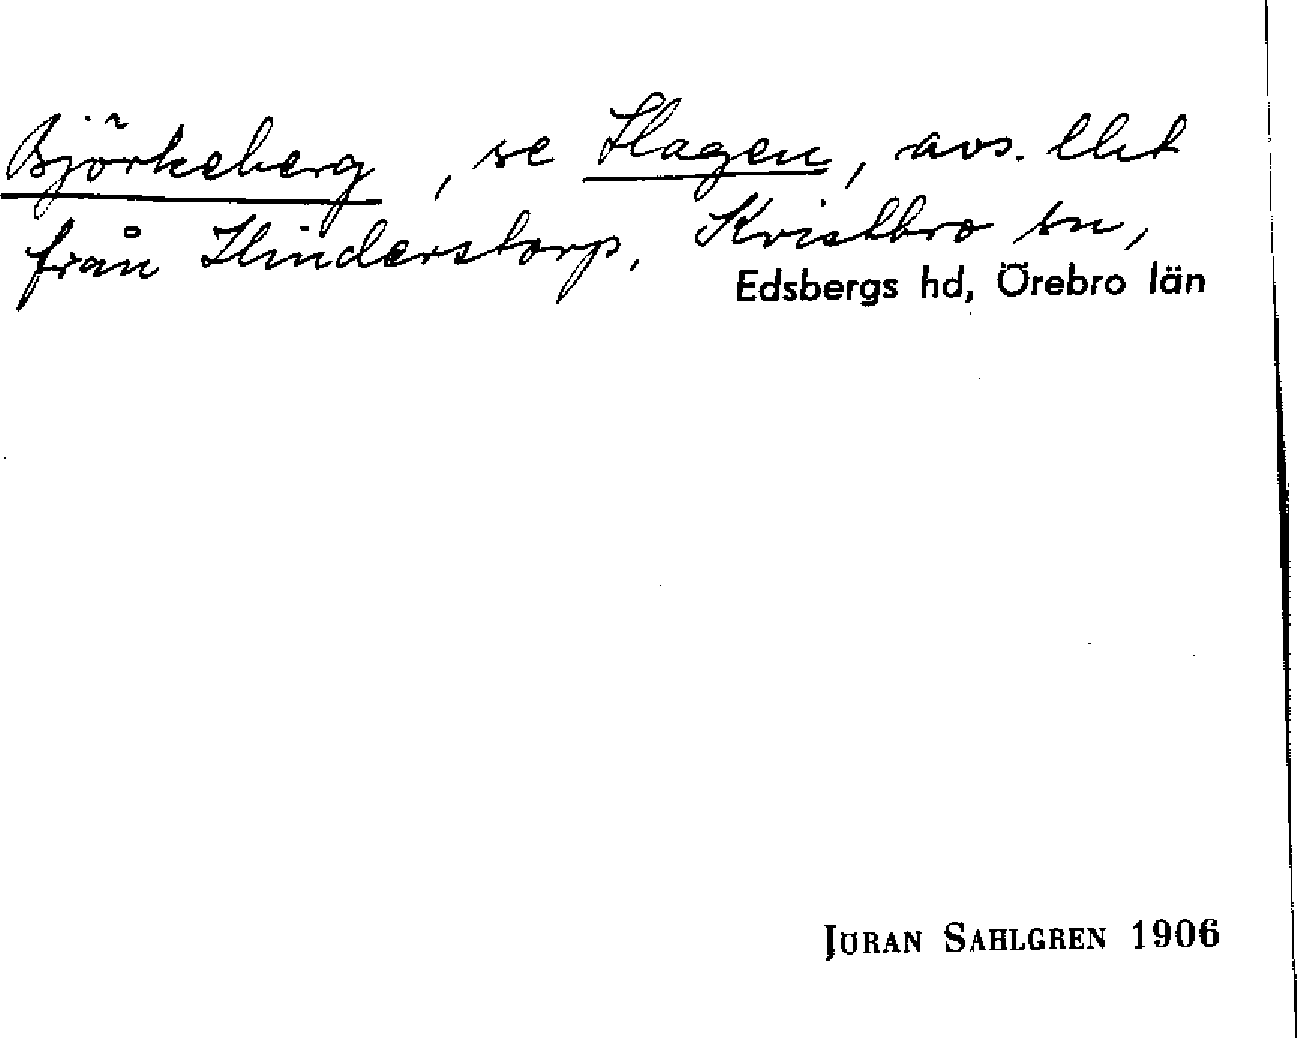 Björkeberg, se Hagen, avs. lht
från Hinderstorp, Kvistbro sn,
Edsbergs hd, Örebro län
JÖRAN SAHLGREN 1906